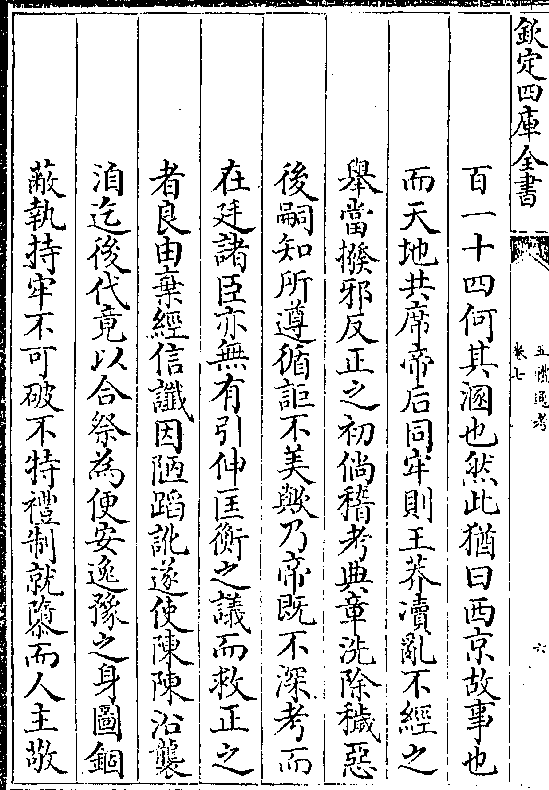 欽定四庫全書
五禮通考
卷七
六
百一十四何其溷也然此猶曰西京故事也
而天地共席帝后同牢則王莽瀆亂不經之
舉當撥邪反正之初倘稽考典章洗除穢惡
後嗣知所遵循詎不美歟乃帝既不深考而
在廷諸臣亦無有引伸匡衡之議而救正之
者良由棄經信讖因陋蹈訛遂使陳陳沿襲
洎迄後代竟以合祭為便安逸豫之身圖錮
蔽執持牢不可破不特禮制就隳而人主敬